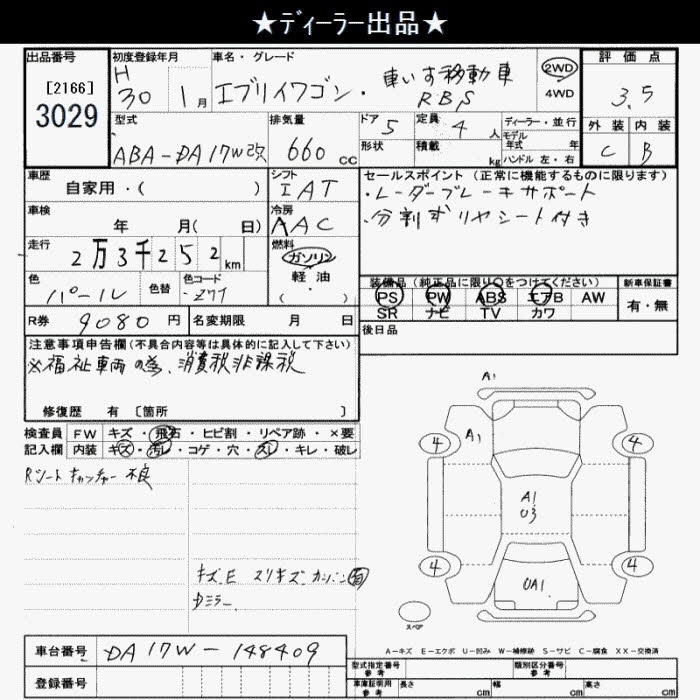 ★ディーラー出品★
出品番号
[2166]
3029
初度登録年月
H
30 1月
車名・グレード
エブリイワゴン・車いす移動車
RBS
2WD
4WD
評価点
3.5
外装 内装
C B
型式
ABA-DA17W改
排気量
660 cc
ドア 5
形状
定員 4 人
積載 kg
ディーラー・並行
モデル
年式 年
ハンドル 左・右
車歴
自家用・( )
シフト
IAT
セールスポイント(正常に機能するものに限ります)
・レーダーブレーキサポート
・分割式リヤシート付き
車検
年 月( 日)
冷房
AAC
走行
2万3千252km
燃料
ガソリン
軽・油
・( )
色
パール
色替
色コード
-Z7T
装備品(純正品に限り○をつけてください)
PS PW ABS エアB AW
SR ナビ TV カワ
新車保証書
有・無
R券 9080円
名変期限 月 日
後日品
注意事項申告欄(不具合内容等は具体的に記入して下さい)
※福祉車両の為、消費税非課税
修復歴 有 〔箇所 〕
検査員 FW キズ・飛石・ヒビ割・リペア跡・×要
記入欄 内装 キズ・汚レ・コゲ・穴・スレ・キレ・破レ
Rシートキャッチャー不良
キズ、E スリキズ カンバン面
Dミラー
A1
A1
4 4
A1
U3
4 4
UA1
スペア
A-キズ E-エクボ U-凹み W-補修跡 S-サビ C-腐食 XX-交換済
車台番号 DA17W-148409
登録番号
型式指定番号
参考
類別区分番号
参考
車庫証明用
参考
長さ cm 幅 cm 高さ cm